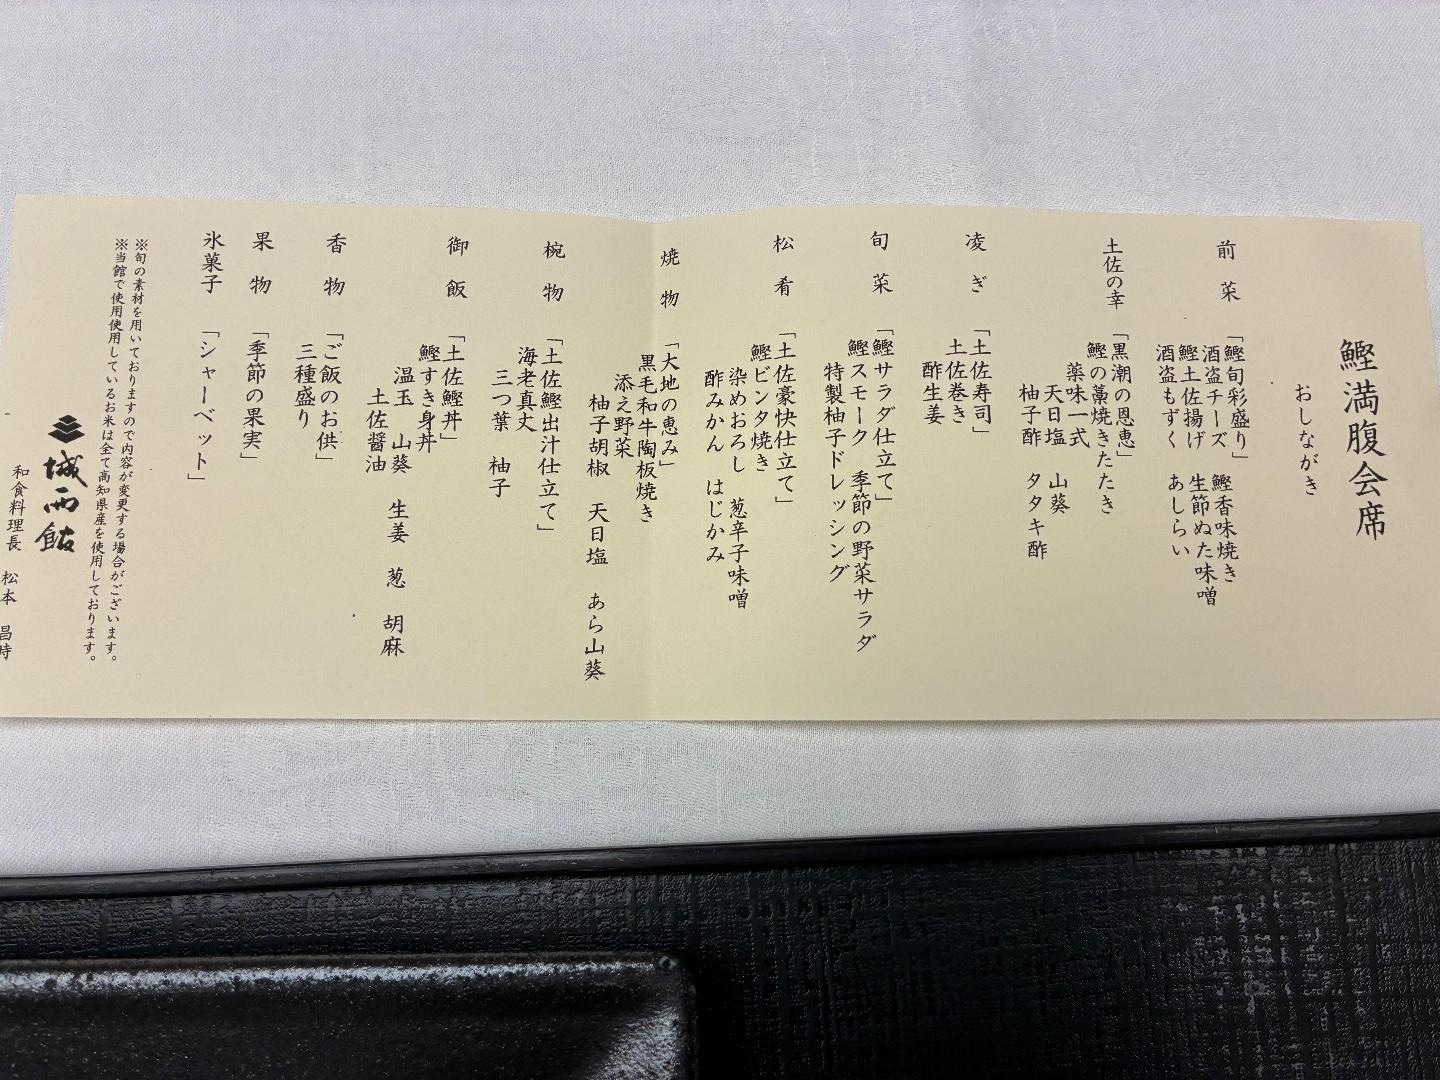 鰹満腹会席
おしながき
前菜 「鰹旬彩盛り」 鰹香味焼き
酒盗チーズ 生節ぬた味噌
鰹土佐揚げ あしらい
酒盗もずく
土佐の幸 「黒潮の恩恵」
鰹の藁焼きたたき
薬味一式 山葵
天日塩 タタキ酢
柚子酢
凌ぎ 「土佐寿司」
土佐巻き
酢生姜
旬菜 「鰹サラダ仕立て」
鰹スモーク 季節の野菜サラダ
特製柚子ドレッシング
松肴 「土佐豪快仕立て」
鰹ビンタ焼き
染めおろし 葱辛子味噌
酢みかん はじかみ
焼物 「大地の恵み」
黒毛和牛陶板焼き
添え野菜
柚子胡椒 天日塩 あら山葵
椀物 「土佐鰹出汁仕立て」
海老真丈
三つ葉 柚子
御飯 「土佐鰹丼」
鰹すき身丼
温玉 山葵 生姜 葱 胡麻
土佐醤油
香物 「ご飯のお供」
三種盛り
果物 「季節の果実」
氷菓子 「シャーベット」
※旬の素材を用いておりますので内容が変更する場合がございます。
※当館で使用使用しているお米は全て高知県産を使用しております。
城西館
和食料理長 松本 昌時